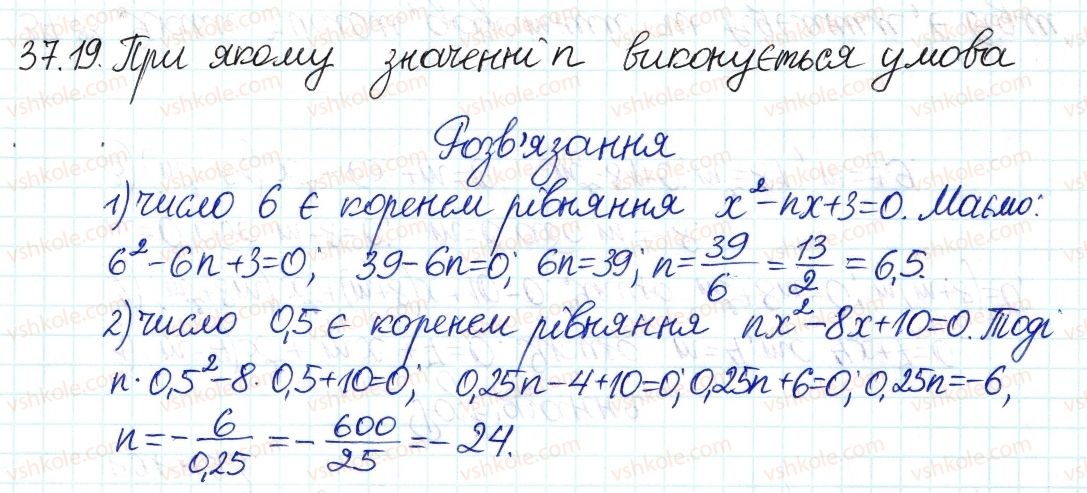 37.19. При якому значенні n виконується умова
Розв'язання
1) число 6 є коренем рівняння x²-nx+3=0. Маємо:
6²-6n+3=0; 39-6n=0; 6n=39; n=39/6=13/2=6,5.
2) число 0,5 є коренем рівняння nx²-8x+10=0. Тоді
n·0,5²-8·0,5+10=0; 0,25n-4+10=0; 0,25n+6=0; 0,25n=-6,
n=-6/0,25=-600/25=-24.